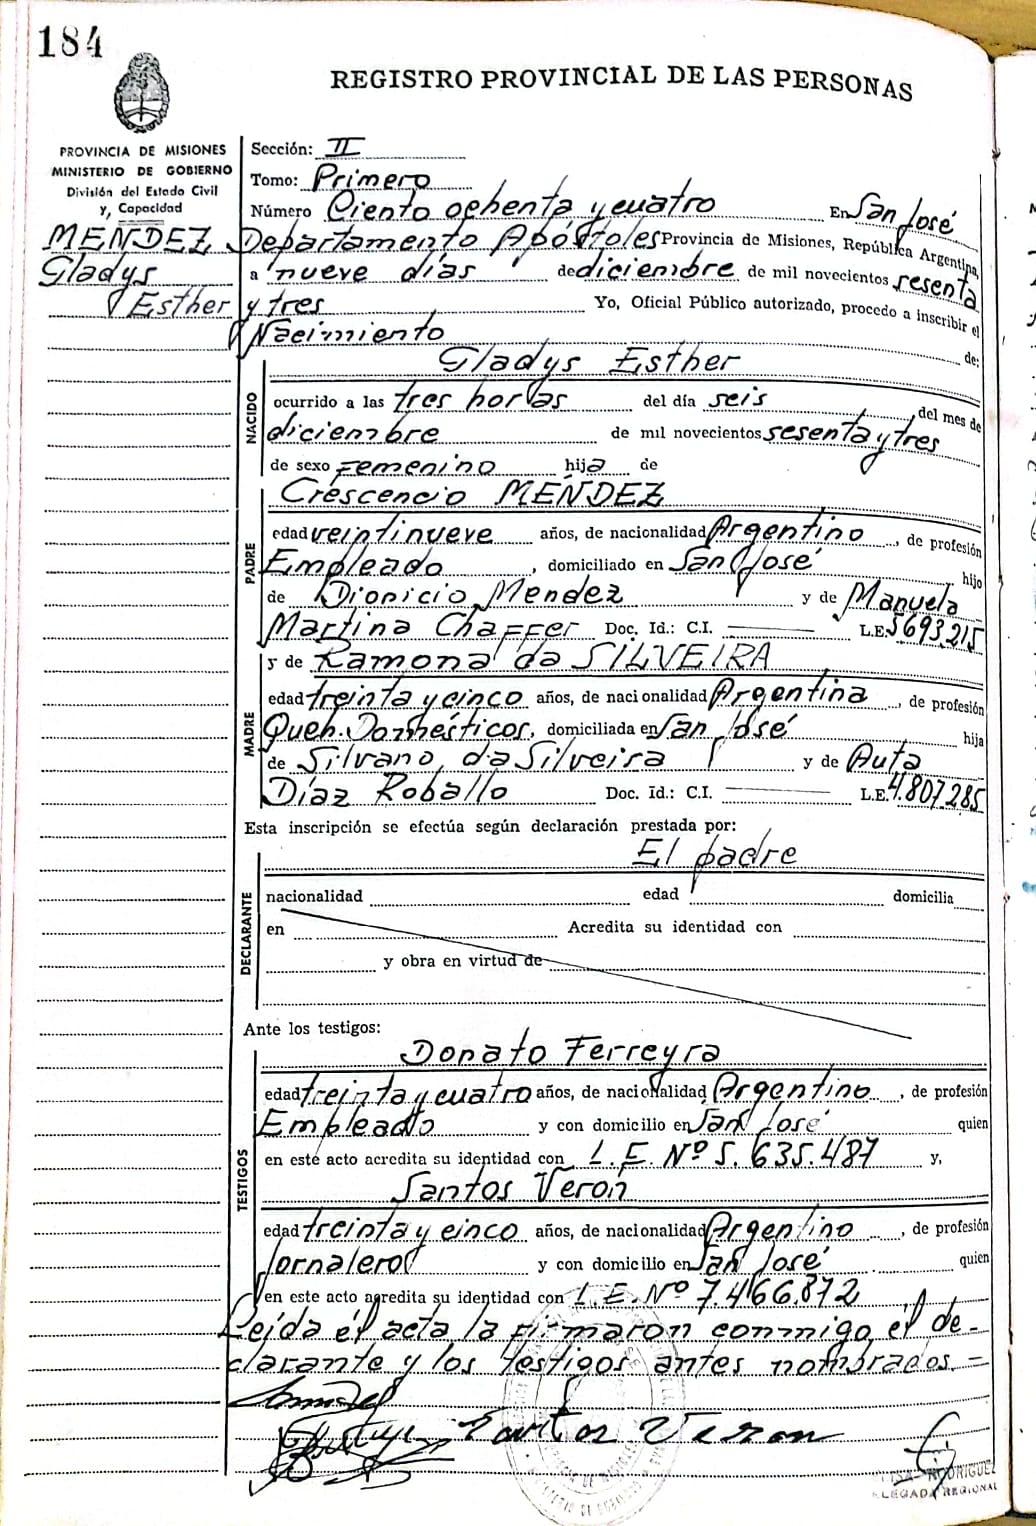 184
REGISTRO PROVINCIAL DE LAS PERSONAS
PROVINCIA DE MISIONES
MINISTERIO DE GOBIERNO
División del Estado Civil
y, Capacidad
MENDEZ
Gladys
Esther
Sección: II
Tomo: Primero
Número Ciento ochenta y cuatro En San José
Departamento Apóstoles Provincia de Misiones, República Argentina,
a nueve días de diciembre de mil novecientos sesenta
y tres Yo, Oficial Público autorizado, procedo a inscribir el
Nacimiento de:
NACIDO
Gladys Esther
ocurrido a las tres horas del día seis del mes de
diciembre de mil novecientos sesenta y tres
de sexo Femenino hija de
PADRE
Crescencio MENDEZ
edad veintinueve años, de nacionalidad Argentino, de profesión
Empleado, domiciliado en San José hijo
de Dionicio Mendez y de Manuela
Martina Chaffer Doc. Id.: C.I. L.E. 5693215
MADRE
y de Ramona da SILVEIRA
edad treinta y cinco años, de nacionalidad Argentina, de profesión
Queh. Domésticos, domiciliada en San José hija
de Silvano da Silveira y de Auta
Díaz Roballo Doc. Id.: C.I. L.E. 4.807.285
Esta inscripción se efectúa según declaración prestada por:
DECLARANTE
El padre
nacionalidad edad domicilia
en Acredita su identidad con
y obra en virtud de
Ante los testigos:
TESTIGOS
Donato Ferreyra
edad treinta y cuatro años, de nacionalidad Argentino, de profesión
Empleado y con domicilio en San José quien
en este acto acredita su identidad con L.E. Nº 5.635.487 y,
Santos Verón
edad treinta y cinco años, de nacionalidad Argentino, de profesión
Jornalero y con domicilio en San José quien
en este acto acredita su identidad con L.E. Nº 7.466.872
Leída el acta la firmaron conmigo, el de-
clarante y los testigos antes nombrados.=
Santos Veron
RODRIGUEZ
DELEGADA REGIONAL